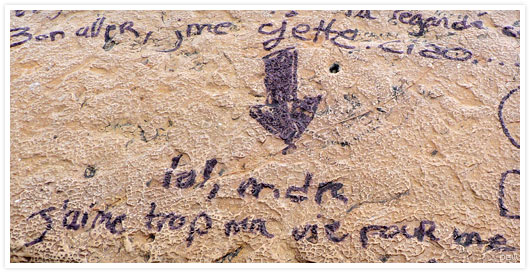 la legende
Bon aller, j'me cjette ciao...
lol, mdr
J'aime trop ma vie pour me